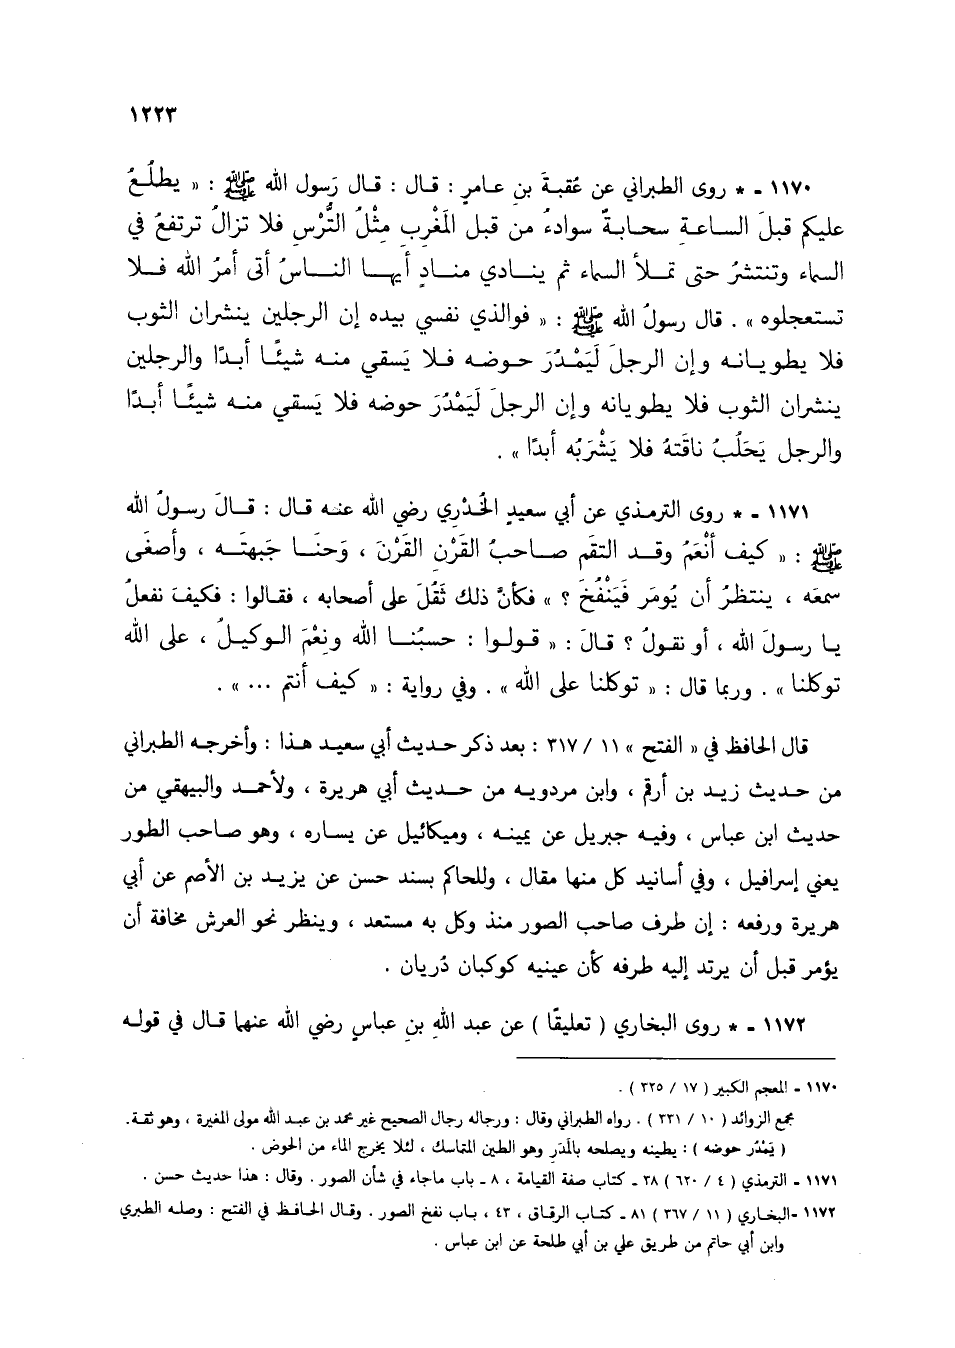 ١٢٢٣
١١٧٠ - * روى الطبراني عن عُقبةَ بنِ عامرٍ : قال : قال رَسول الله ﷺ : « يطلُعُ
عليكم قبلَ الساعةِ سحابةٌ سوادءُ من قبل المَغْربِ مِثْلُ التُّرْسِ فلا تزالُ ترتفعُ في
السماء وتنتشرُ حتى تملأَ السماء ثم ينادي منادٍ أيهـا النـاسُ أتى أمرُ الله فـلا
تستعجلوه » . قال رسولُ الله ﷺ : « فوالذي نفسي بيده إن الرجلين ينشران الثوب
فلا يطويانه وإن الرجلَ لَيَمْدُرَ حوضه فلا يَسقي منه شيئًا أبدًا والرجلين
ينشران الثوب فلا يطويانه وإن الرجلَ لَيَمْدُرَ حوضه فلا يَسقي منه شيئًا أبدًا
والرجل يَحَلُبُ ناقَتهُ فلا يَشْرَبُه أبدًا » .
١١٧١ - * روى الترمذي عن أبي سعيدٍ الخُدْري رضي الله عنه قال : قالَ رسولُ الله
ﷺ : « كيف أنْعَمُ وقد التقم صاحبُ القَرْنِ القَرْنَ ، وَحنَا جَبهتَه ، وأصغَى
سمعَه ، ينتظرُ أن يُومَر فَيَنْفُخَ ؟ » فكأنَّ ذلك ثَقُلَ على أصحابه ، فقالوا : فكيفَ نفعلُ
يا رسولَ الله ، أو نقولُ ؟ قالَ : « قولوا : حسبُنا الله ونِعْمَ الوكيلُ ، على الله
توكلنا » . وربما قال : « توكلنا على الله » . وفي رواية : « كيف أنتم ... » .
قال الحافظ في « الفتح » ١١ / ٣١٧ : بعد ذكر حديث أبي سعيد هذا : وأخرجه الطبراني
من حديث زيد بن أرقم ، وابن مردويه من حديث أبي هريرة ، ولأحمد والبيهقي من
حديث ابن عباس ، وفيه جبريل عن يمينه ، وميكائيل عن يساره ، وهو صاحب الطور
يعني إسرافيل ، وفي أسانيد كل منها مقال ، وللحاكم بسند حسن عن يزيد بن الأصم عن أبي
هريرة ورفعه : إن طرف صاحب الصور منذ وكل به مستعد ، وينظر نحو العرش مخافة أن
يؤمر قبل أن يرتد إليه طرفه كأن عينيه كوكبان دُريان .
١١٧٢ - * روى البخاري ( تعليقًا ) عن عبد اللهِ بنِ عباسٍ رضي الله عنهما قال في قوله
١١٧٠ - المعجم الكبير ( ١٧ / ٣٢٥ ) .
مجمع الزوائد ( ١٠ / ٣٣١ ) . رواه الطبراني وقال : ورجاله رجال الصحيح غير محمد بن عبد الله مولى المغيرة ، وهو ثقة.
( يَمْدُر حوضه ) : يطينه ويصلحه بالمَدَر وهو الطين المتماسك ، لئلا يخرج الماء من الحوض .
١١٧١ - الترمذي ( ٤ / ٦٢٠ ) ٣٨ - كتاب صفة القيامة ، ٨ - باب ماجاء في شأن الصور . وقال : هذا حديث حسن .
١١٧٢ -البخاري ( ١١ / ٣٦٧ ) ٨١ - كتاب الرقاق ، ٤٣ ، باب نفخ الصور . وقال الحافظ في الفتح : وصله الطبري
وابن أبي حاتم من طريق علي بن أبي طلحة عن ابن عباس .